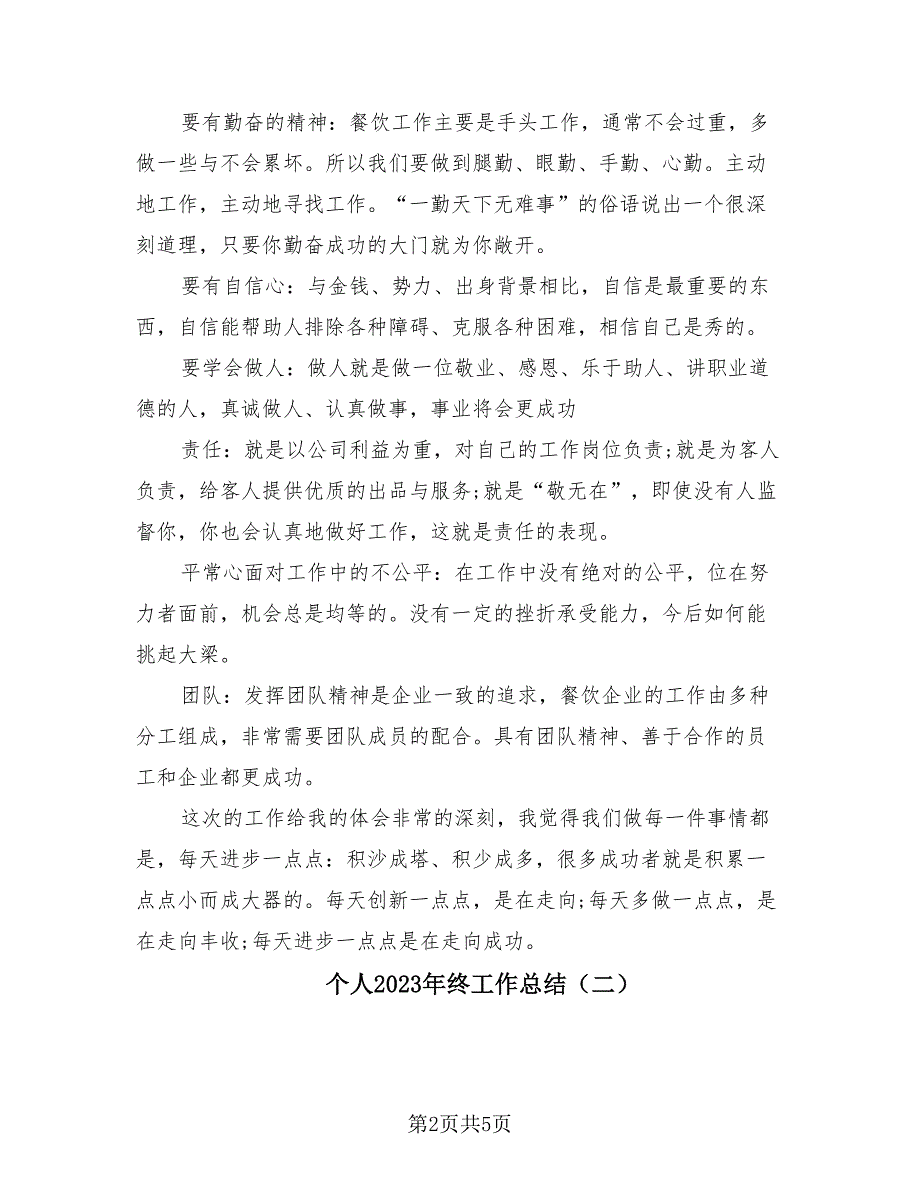 要有勤奋的精神：餐饮工作主要是手头工作，通常不会过重，多
做一些与不会累坏。所以我们要做到腿勤、眼勤、手勤、心勤。主动
地工作，主动地寻找工作。“一勤天下无难事”的俗语说出一个很深
刻道理，只要你勤奋成功的大门就为你敞开。
要有自信心：与金钱、势力、出身背景相比，自信是最重要的东
西，自信能帮助人排除各种障碍、克服各种困难，相信自己是秀的。
要学会做人：做人就是做一位敬业、感恩、乐于助人、讲职业道
德的人，真诚做人、认真做事，事业将会更成功
责任：就是以公司利益为重，对自己的工作岗位负责;就是为客人
负责，给客人提供优质的出品与服务;就是“敬无在”，即使没有人监
督你，你也会认真地做好工作，这就是责任的表现。
平常心面对工作中的不公平：在工作中没有绝对的公平，位在努
力者面前，机会总是均等的。没有一定的挫折承受能力，今后如何能
挑起大梁。
团队：发挥团队精神是企业一致的追求，餐饮企业的工作由多种
分工组成，非常需要团队成员的配合。具有团队精神、善于合作的员
工和企业都更成功。
这次的工作给我的体会非常的深刻，我觉得我们做每一件事情都
是，每天进步一点点：积沙成塔、积少成多，很多成功者就是积累一
点点小而成大器的。每天创新一点点，是在走向;每天多做一点点，是
在走向丰收;每天进步一点点是在走向成功。
个人2023年终工作总结（二）
第2页共5页